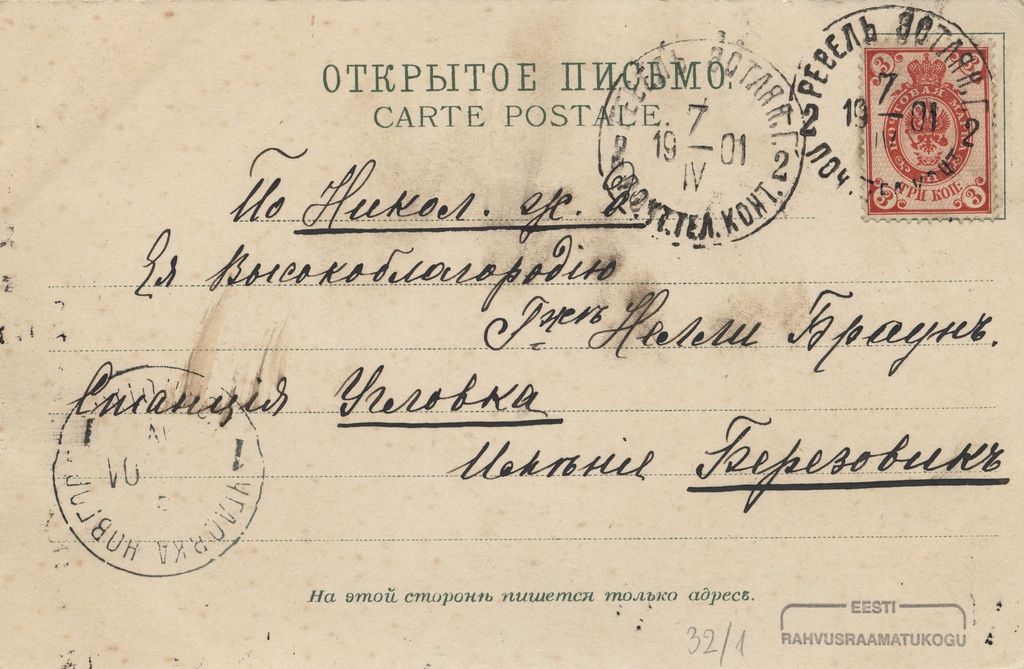 ОТКРЫТОЕ ПИСЬМО.
CARTE POSTALE.
РЕВЕЛЬ ЭСТЛЯН. Г.
2 7 2
19 — 01
IV
ПОЧТ. ТЕЛ. КОНТ.
РЕВЕЛЬ ЭСТЛЯН. Г.
2 7 2
19 — 01
IV
ПОЧ.
3 3
ПОЧТОВАЯ МАРКА
3 ТРИ КОП. 3
По Никол. ж. д.
Ея Высокоблагородію
Гжѣ Нелли Браунъ.
Станція Угловка
Имѣніе Березовикъ
УГЛОВКА НОВГОР.
1 IV 1
01
На этой сторонѣ пишется только адресъ.
32/1
EESTI
RAHVUSRAAMATUKOGU